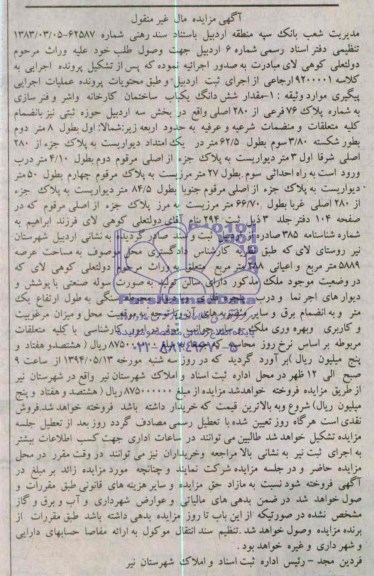 آگهی مزایده مال غیر منقول
مدیریت شعب بانک سپه منطقه اردبیل باستناد سند رهنی شماره ۶۲۵۸۷-۱۳۸۳/۰۳/۰۵
تنظیمی دفتر اسناد رسمی شماره ۶ اردبیل جهت وصول طلب خود علیه وراث مرحوم
دولتعلی کوهی لای مبادرت به صدور اجرائیه نموده که پس از تشکیل پرونده اجرایی به
کلاسه ۹۲۰۰۰۰۱ ارجاعی از اجرای ثبت اردبیل و طبق محتویات پرونده عملیات اجرایی
پیگیری موارد وثیقه : ۱-مقدار شش دانگ یکباب ساختمان کارخانه واشر و فنر سازی
به شماره پلاک ۷۶ فرعی از ۲۸۰ اصلی واقع در بخش سه اردبیل حوزه ثبتی نیر بانضمام
کلیه متعلقات و منضمات شرعیه و عرفیه به حدود اربعه زیر:شمالا: اول بطول ۸ متر دوم
بطور شکسته ۳/۸۰ سوم بطول ۶۲/۵ متر در یک امتداد دیواریست به پلاک جزء از ۲۸۰
اصلی شرقا اول ۳ متر دیواریست به پلاک جزء از اصلی مرقوم دوم بطول ۴/۱۰ متر درب
ورود است به راه احداثی سوم بطول ۲۷ متر مرزیست به پلاک مرقوم چهارم بطول ۵۰ متر
دیواریست به پلاک جزء از اصلی مرقوم جنوبا بطول ۸۴/۵ متر دیواریست به پلاک جزء
از ۲۸۰ اصلی غربا بطول ۶۶/۷۰ متر مرزیست به مرز پلاک جزء از اصلی مرقوم که در
صفحه ۱۰۴ دفتر جلد ۳ ذیل ثبت ۲۹۴ بنام آقای دولتعلی کوهی لای فرزند ابراهیم به
شماره شناسنامه ۳۸۵ صادره از ثبت و سند صادر گردیده به نشانی اردبیل شهرستان
نیر روستای لای که طبق نظریه کارشناس دادگستری محل موصوف به مساحت عرصه
۵۸۸۹ متر مربع و اعیانی ۲۸۸ متر مربع متعلق به وراث مرحوم دولتعلی کوهی لای که
در وضعیت موجود ملک مذکور دارای سالن تولید به صورت سوله صنعتی با پوشش و
دیوار های اجر نما و درب به طول ارتفاع یک
متر و به انضمام برق و سایر به موقعیت محل و میزان مرغوبیت
و کاربری وبهره وری ملک و سایر جوانب کارشناسی با کلیه متعلقات
مربوطه بر اساس نرخ روز محاسبه که به مبلغ ۸۷۵۰۰۰۰۰۰ ریال (هشتصد و هفتاد و
پنج میلیون ریال )برآورد گردید که در روز سه شنبه مورخه ۱۳۹۴/۰۵/۱۳ از ساعت ۹
صبح الی ۱۲ ظهر در محل اداره ثبت اسناد و املاک شهرستان نیر واقع در شهرستان نیر
از طریق مزایده فروخته خواهد شد.مزایده از مبلغ ۸۷۵۰۰۰۰۰۰ ریال ( هشتصد و هفتاد و پنج
میلیون ریال) شروع و به بالاترین قیمت که خریدار داشته باشد فروخته خواهد شد.فروش
نقدی است هر گاه روز تعیین شده با تعطیل رسمی مصادف گردد روز بعد از تعطیل جلسه
مزایده تشکیل خواهد شد طالبین می توانند در ساعات اداری جهت کسب اطلاعات بیشتر
به اجرای ثبت نیر به نشانی بالا مراجعه وخریداران نیز می توانند در وقت مقرر در محل
مزایده حاضر و در جلسه مزایده شرکت نمایند و چنانچه مورد مزایده زائد بر مبلغ در
آگهی فروخته شود نسبت به مازاد حق مزایده و سایر هزینه های قانونی طبق مقررات و
صول خواهد شد در ضمن بدهی های مالیاتی و عوارض شهرداری و آب و برق و گاز
مشخص نشده در صورتیکه از این باب تا روز مزایده بدهی داشته باشد طبق مقررات از
برنده مزایده وصول خواهد شد .تنظیم سند انتقال موکول به ارائه مفاصا حسابهای دارایی
و شهر داری و غیره خواهد بود .
فردین مجد - رئیس اداره ثبت اسناد و املاک شهرستان نیر
ParsNamadData
۰۲۱-۸۸۳۴۹۶۷۰-۵